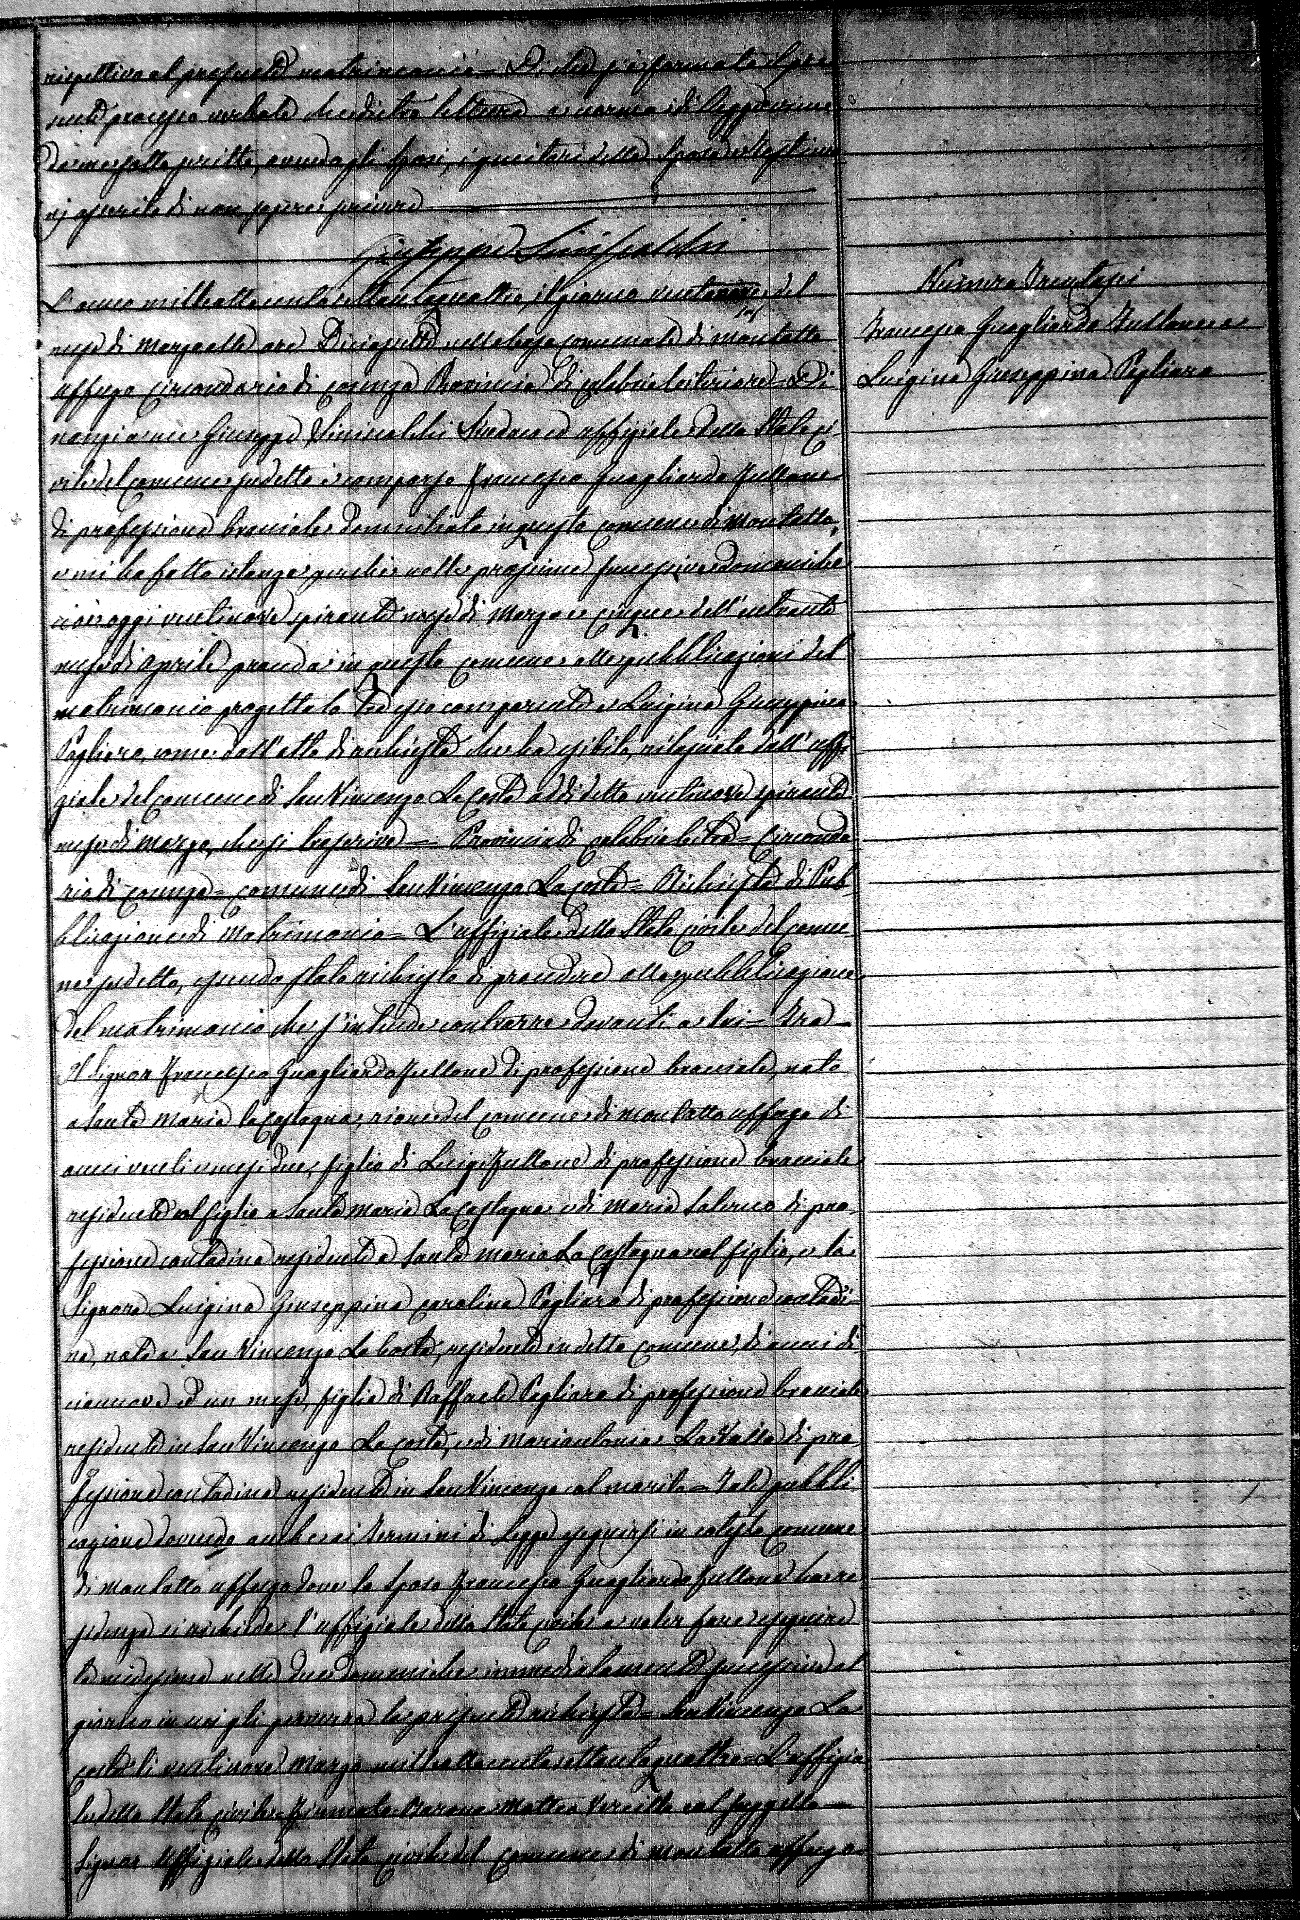 rispettivo al presente matrimonio = Di che si è formato il pre
sente processo verbale che dietro lettura a norma di Legge viene
da me sottoscritto, avendo gli sposi, i genitori dello sposo e Testimo
nj asserito di non sapere scrivere
Giuseppe Sinibaldi
L'anno milleottocentosettantaquattro, il giorno ventinove del
mese di Marzo alle ore Diciasette nella Casa comunale di Montalto
uffugo Circondario di cosenza Provincia di calabria Citeriore = Di
nanzi a me Giuseppe Sinibaldi Sindaco ed uffiziale dello Stato ci
vile del comune sudetto è comparso Francesco Guagliardo Fullone
di professione bracciale domiciliato in questo comune di Montalto,
e mi ha fatto istanza perchè nelle prossime successive domeniche
cioè oggi ventinove spirante mese di Marzo e cinque dell'entrante
mese di Aprile proceda in questo comune alle pubblicazioni del
matrimonio progettato tra esso comparente e Luigina Giuseppina
Pagliaro, come dall'atto di richiesta che ha esibito, rilasciato dall'uffi
ziale del Comune di San Vincenzo La Costa addì detto ventinove spirante
mese di Marzo, che si trascrive = Provincia di Calabria Citra = Circonda
rio di cosenza = comune di San Vincenzo La Costa = Richiesta di Pub
blicazione di Matrimonio = L'uffiziale dello Stato civile del comu
ne sudetto, essendo stato richiesto di procedere alla pubblicazione
del matrimonio che s'intende contrarre davanti a lui = Tra =
Il Signor Francesco Guagliardo Fullone di professione bracciale, nato
a Santa Maria la Castagna, rione del comune di Montalto uffugo di
anni venti mesi due, figlio di Luigi Fullone di professione bracciale
residente col figlio a Santa Maria La Castagna e di Maria Salerno di pro
fessione contadina residente a Santa Maria La Castagna col figlio, e la
Signora Luigina Giuseppina Carolina Pagliaro di professione contadi
na, nata a San Vincenzo La Costa, residente in detto comune, di anni di
ciannove ed un mese, figlia di Raffaele Pagliaro di professione bracciale
residente in San Vincenzo La Costa, e di Mariantonia La Valle di pro
fessione contadina residente in San Vincenzo col marito = Tale pubbli
cazione dovendo anche ai Termini di Legge eseguirsi in cotesto comune
di Montalto uffugo dove lo sposo Francesco Guagliardo Fullone ha re
sidenza si richiede l'uffiziale dello Stato civile a voler fare eseguire
la medesima nelle due domeniche immediatamente successive al
giorno in cui gli perverrà la presente richiesta = San Vincenzo La
Costa lì ventinove Marzo milleottocentosettantaquattro = L'uffizia
le dello Stato Civile Firmato Matteo Vercillo col suggello =
Signor Uffiziale dello Stato Civile del comune di Montalto uffugo
Numero Trentasei
Francesco Guagliardo Fullone e
Luigina Giuseppina Pagliaro